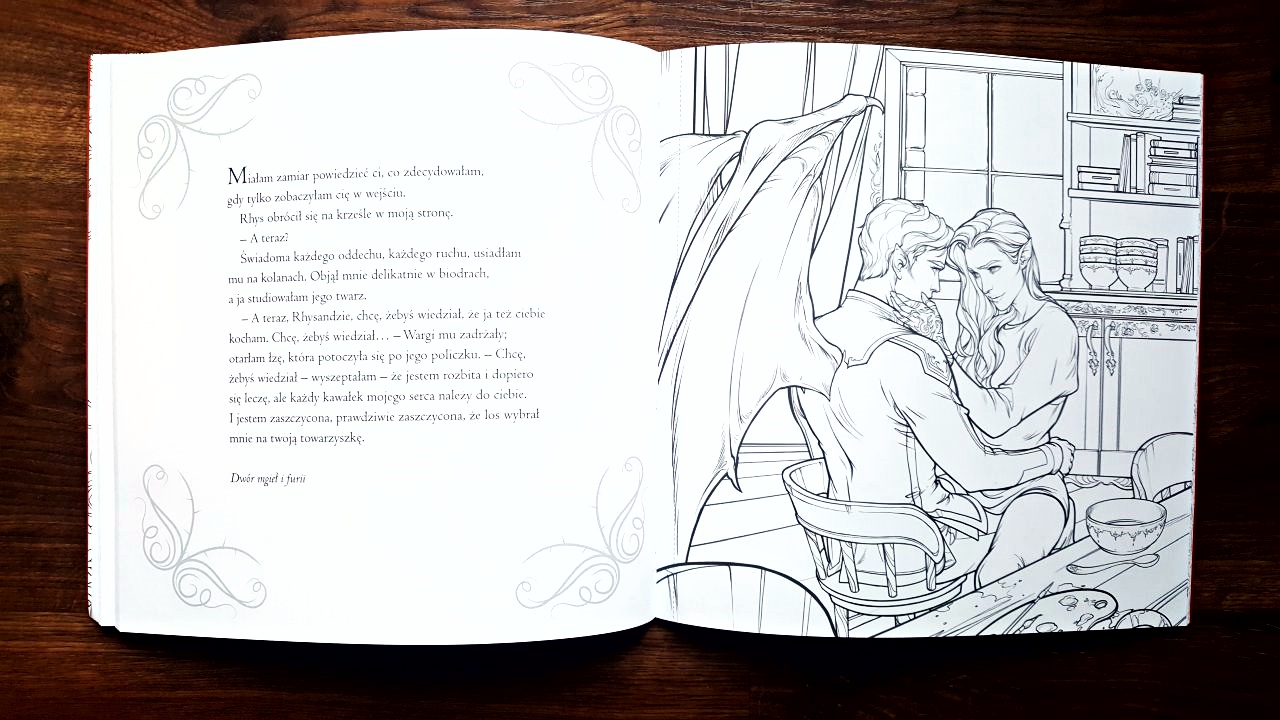 Miałam zamiar powiedzieć ci, co zdecydowałam,
gdy tylko zobaczyłam cię w wejściu.
Rhys obrócił się na krześle w moją stronę.
– A teraz?
Świadoma każdego oddechu, każdego ruchu, usiadłam
mu na kolanach. Objął mnie delikatnie w biodrach,
a ja studiowałam jego twarz.
– A teraz, Rhysandzie, chcę, żebyś wiedział, że ja też ciebie
kocham. Chcę, żebyś wiedział… – Wargi mu zadrżały;
otarłam łzę, która potoczyła się po jego policzku. – Chcę,
żebyś wiedział – wyszeptałam – że jestem rozbita i dopiero
się leczę, ale każdy kawałek mojego serca należy do ciebie.
I jestem zaszczycona, prawdziwie zaszczycona, że los wybrał
mnie na twoją towarzyszkę.
Dwór mgieł i furii